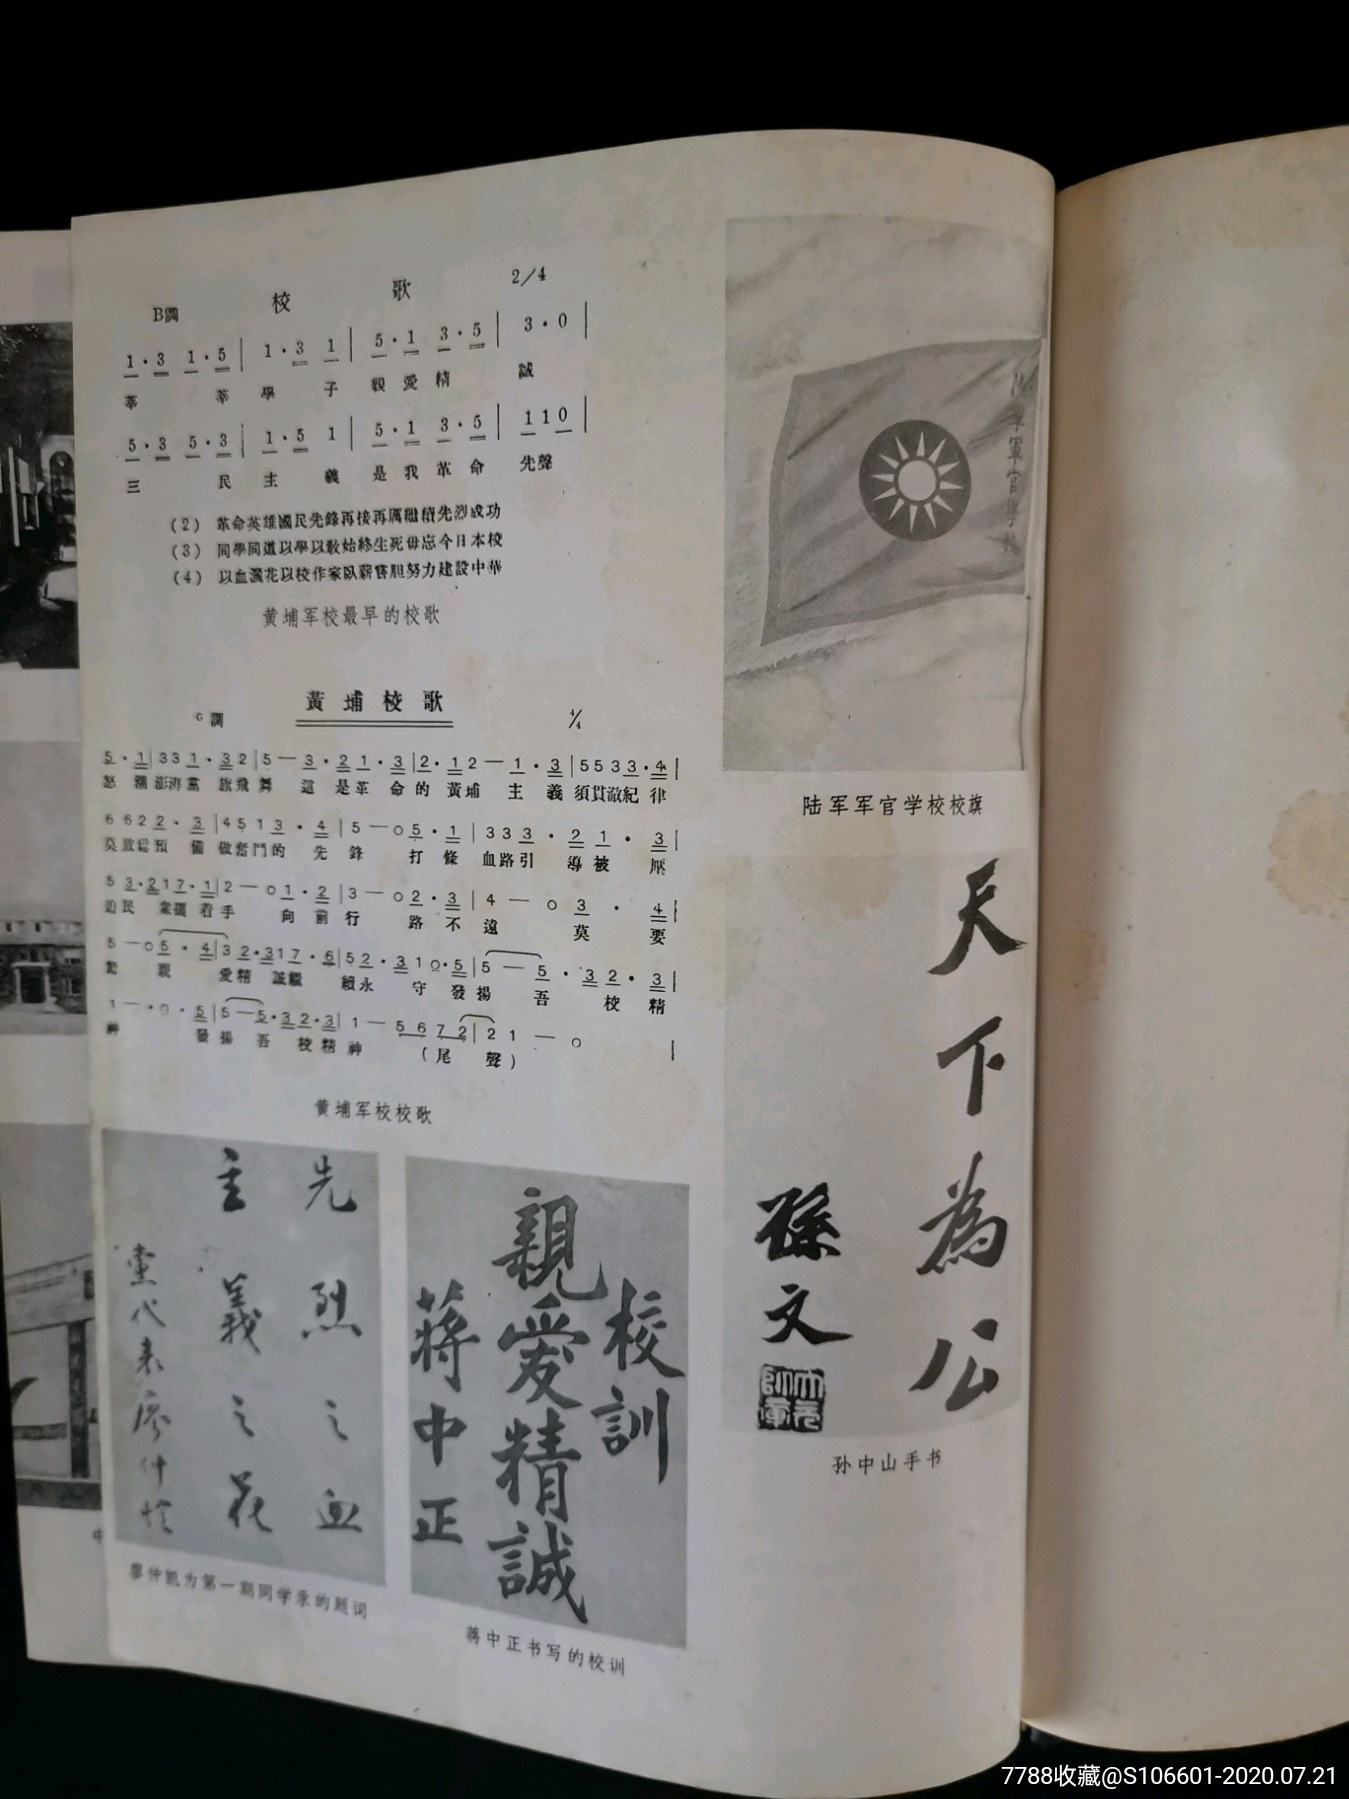 校 歌
B調 2/4
1·3 1·5 | 1·3 1 | 5·1 3·5 | 3·0 |
莘 莘 學 子 親 愛 精 誠
5·3 5·3 | 1·5 1 | 5·1 3·5 | 110 |
三 民 主 義 是 我 革 命 先聲
(2) 革命英雄國民先鋒再接再厲繼續先烈成功
(3) 同學同道以學以教始終生死毋忘今日本校
(4) 以血灑花以校作家臥薪嘗胆努力建設中華
黄埔军校最早的校歌
黃埔校歌
C調 4/4
5·1|331·32|5—3·21·3|2·12—1·3|5533·4|
怒潮澎湃黨旗飛舞這是革命的黃埔主義須貫澈紀律
6622·3|4513·4|5—05·1|333·21·3|
莫放鬆預備做奮鬥的先鋒打條血路引導被壓
53·217·1|2—01·2|3—02·3|4—03·4|
迫民衆攜着手向前行路不遠莫要
5—05·4|32·317·6|52·310·5|5—5·32·3|
驚親愛精誠繼續永守發揚吾校精
1—·0·5|5—5·32·3|1—5672|21—0|
神發揚吾校精神(尾聲)
黄埔军校校歌
陆军军官学校
陆军军官学校校旗
天下為公
孫文
孙中山手书
先烈之血
主義之花
黨代表廖仲愷
廖仲凯为第一期同学录的题词
校訓
親愛精誠
蔣中正
蒋中正书写的校训
7788收藏@S106601-2020.07.21